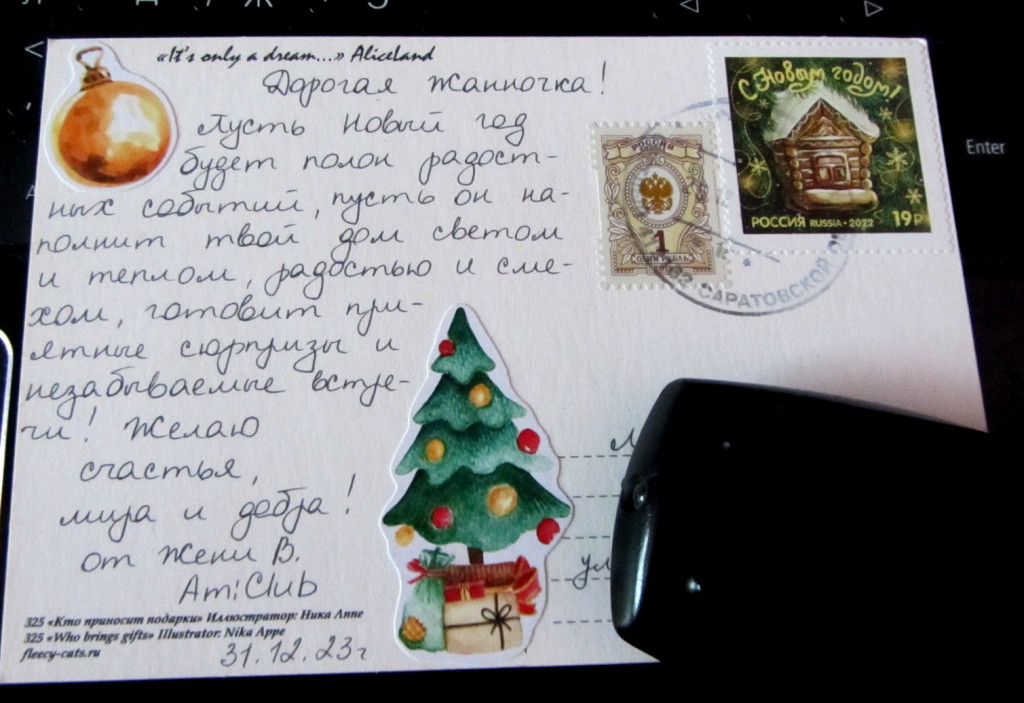 «It's only a dream...» Aliceland
Дорогая Жанночка!
Пусть Новый год
будет полон радост-
ных событий, пусть он на-
полнит твой дом светом
и теплом, радостью и сме-
хом, готовит при-
ятные сюрпризы и
незабываемые встре-
чи! Желаю
счастья,
мира и добра!
от Жени В.
AmiClub
325 «Кто приносит подарки» Иллюстратор: Ника Аппе
325 «Who brings gifts» Illustrator: Nika Appe
fleecy-cats.ru
31.12.23г
РОССИЯ
1
ОДИН РУБЛЬ
С Новым годом!
РОССИЯ RUSSIA • 2022 19Р
САРАТОВСКОЙ
ул
Enter